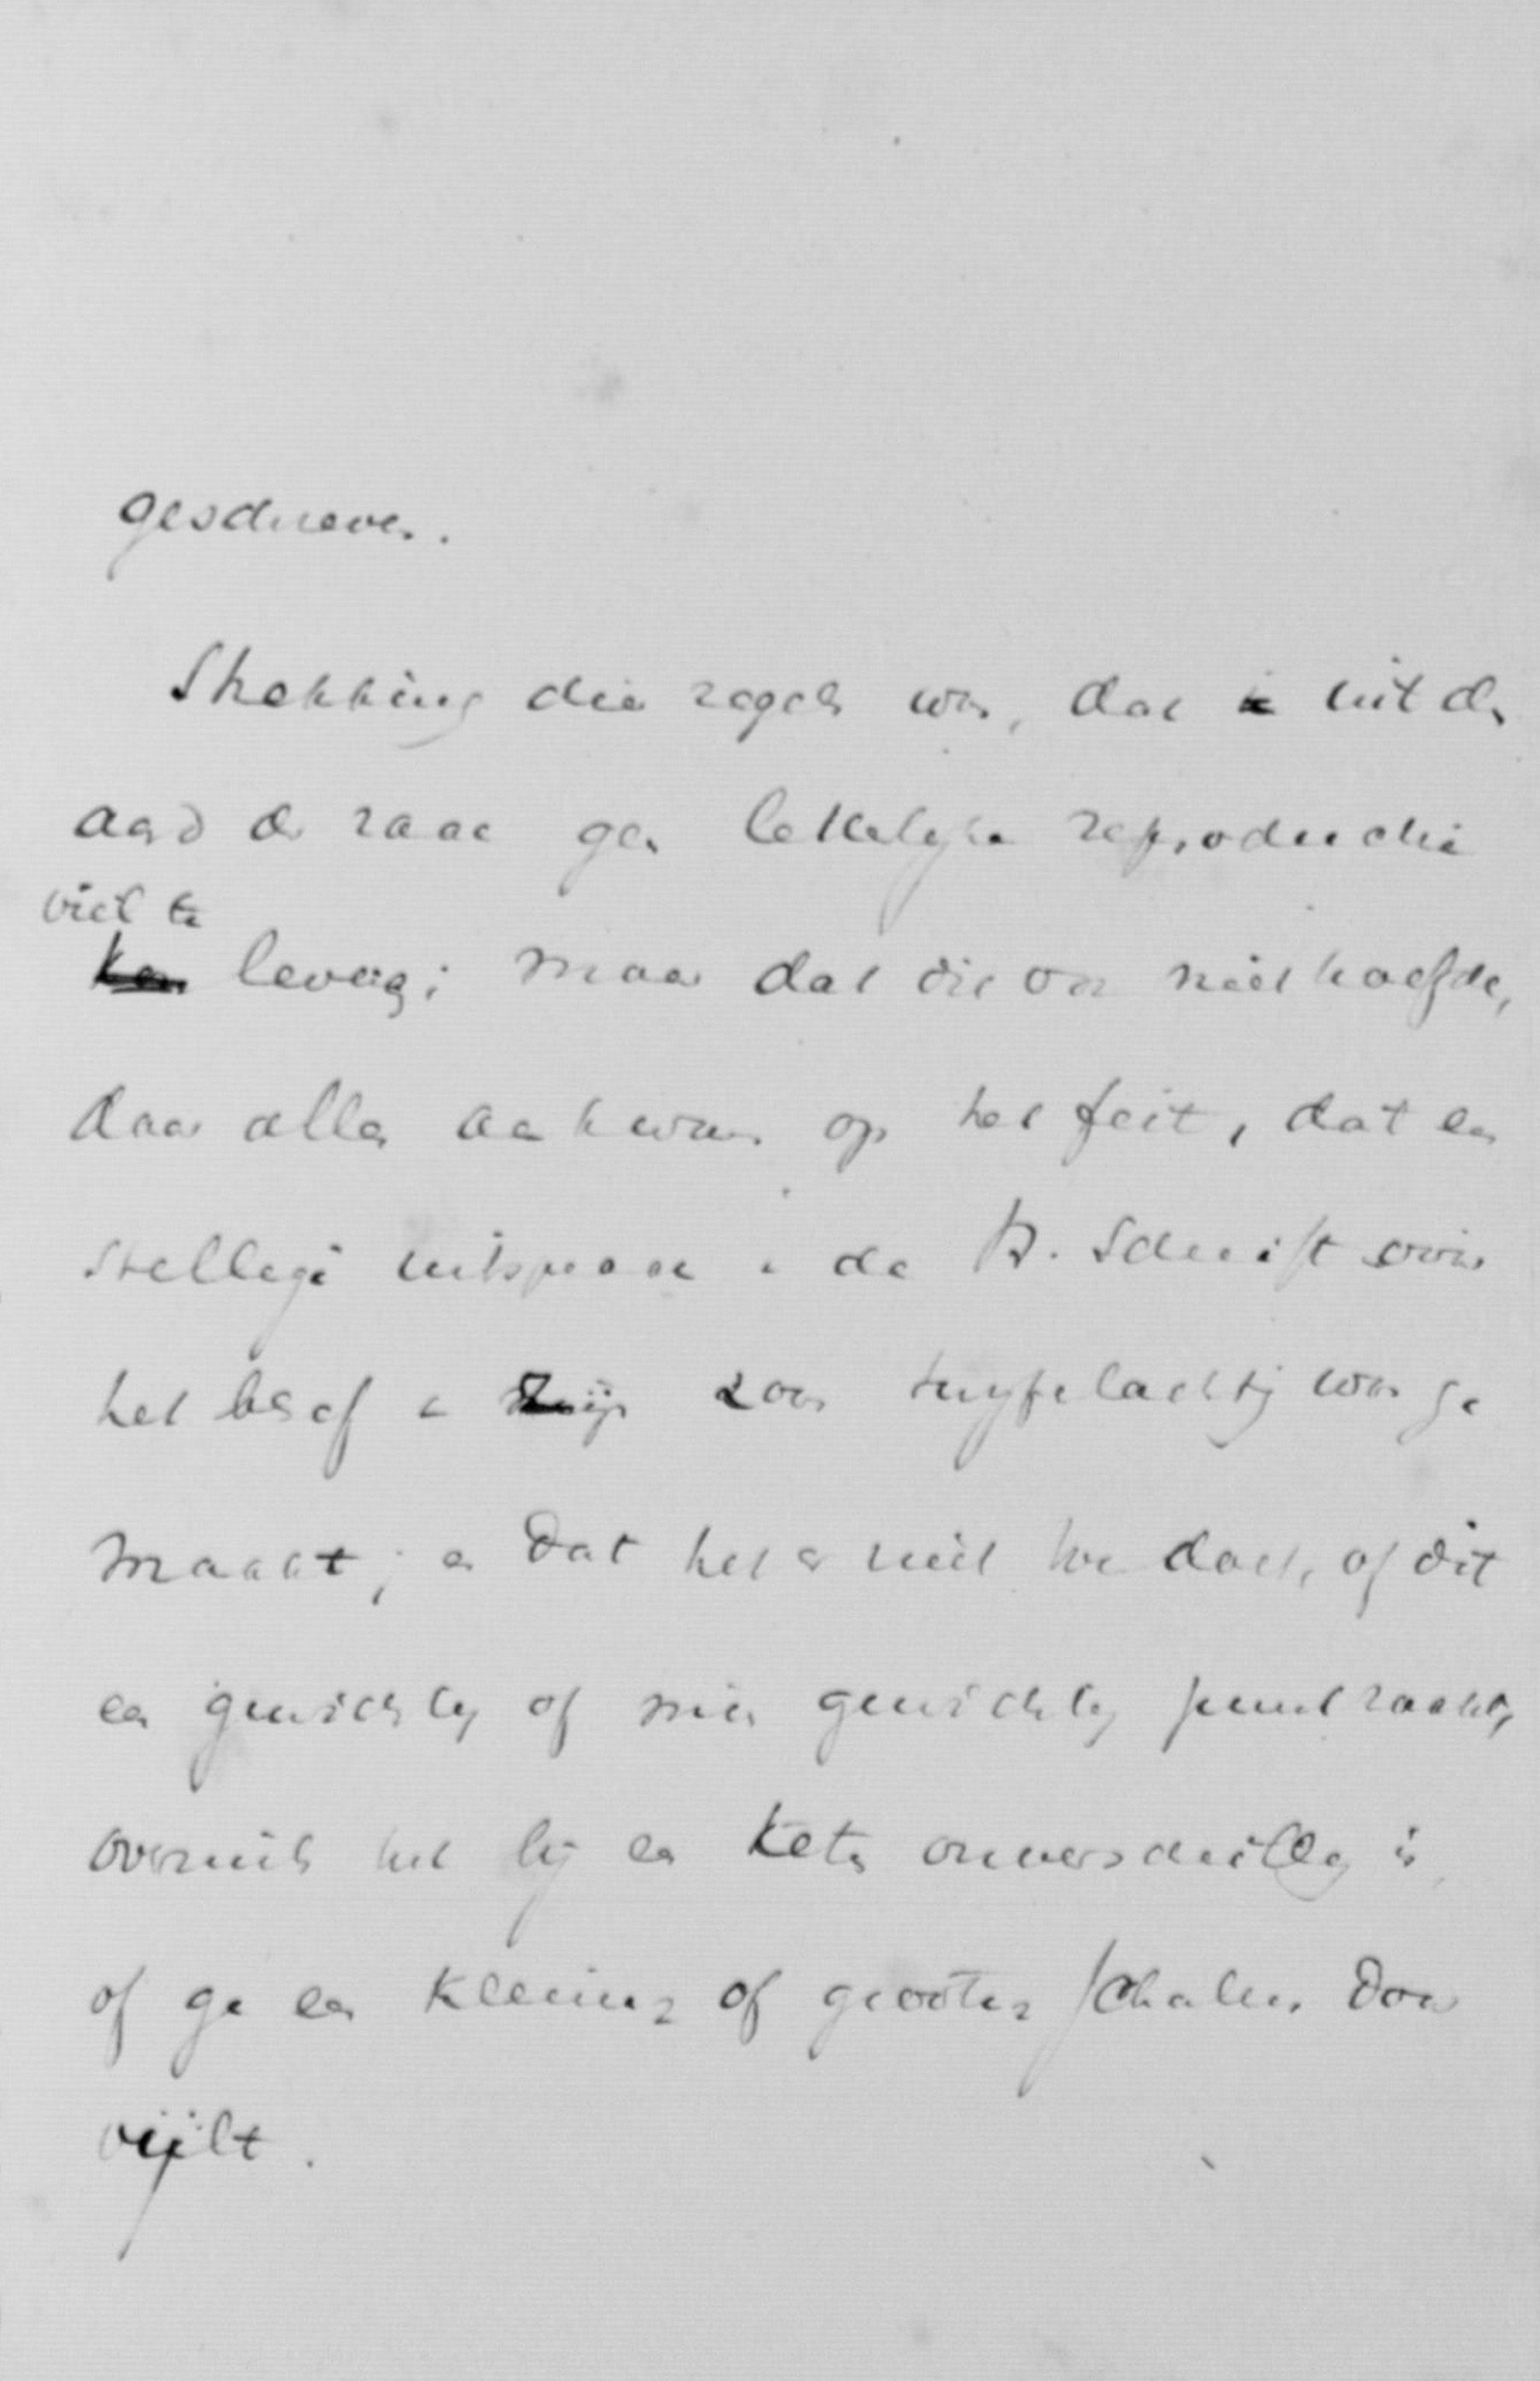 geschreven.
Strekking dier regels was, dat uit den
aard der zaak geen letterlijke reproductie
viel te
leveren; maar dat die ook niet hoefde,
daar alles aankwam op het feit, dat een
stellige uitspraak in de H. Schrift over
het besef in zijn zoon twijfelachtig was ge
maakt; en dat het er niet toe doet, of dit
een gewichtig of min gewichtig punt raakt,
overmits het bij een keten onverschillig is,
of ge een kleiner of grooter schalm door
vijlt.